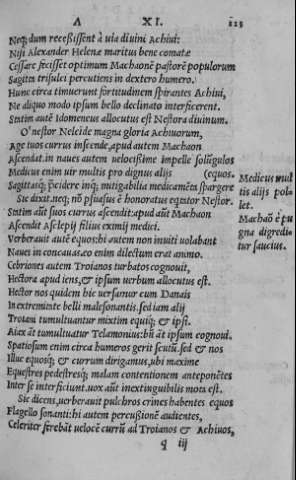 Λ XI. 113
Neq; dum recessissent à uia diuini Achiui:
Nisi Alexander Helenæ maritus bene comatæ
Cessare fecisset optimum Machaonẽ pastorẽ populorum
Sagitta trisulci percutiens in dextero humero.
Hunc circa timuerunt fortitudinem spirantes Achiui,
Ne aliquo modo ipsum bello declinato interficerent.
Statim autẽ Idomeneus allocutus est Nestora diuinum.
O' nestor Neleide magna gloria Achiuorum,
Age tuos currus inscende, apud autem Machaon
Ascendat. in naues autem uelocissime impelle solidũgulos
Medicus enim uir multis pro dignus alijs (equos.
Sagittasq; p̃cidere inq; mitigabilia medicamẽta spargere
Sic dixit. neq; nõ p̃suasus ẽ honoratus equitor Nestor.
Statim aũt suos currus ascendit: apud aũt Machaon
Ascendit Asclepij filius eximij medici.
Verberauit autẽ equos: hi autem non inuiti uolabant
Naues in concauas. eo enim dilectum erat animo.
Cebriones autem Troianos turbatos cognouit,
Hectora apud iens, & ipsum uerbum allocutus est.
Hector nos quidem hic uersamur cum Danais
In extremitate belli malesonantis. sed iam alij
Troiani tumultuantur mixtim equiq; & ipsi.
Aiax ãt tumultuatur Telamonius: bñ ãt ipsum cognoui.
Spatiosum enim circa humeros gerit scutũ. sed & nos
Illuc equosq; & currum dirigamus, ubi maxime
Equestres pedestresq; malam contentionem anteponẽtes
Inter se interficiunt. uox aũt inextinguibilis mota est.
Sic dicens, uerberauit pulchros crines habentes equos
Flagello sonanti: hi autem percussionẽ audientes,
Celeriter ferebãt uelocẽ currũ ad Troianos & Achiuos,
q iij
Medicus mul
tis alijs pol
let.
Machaõ ẽ pu
gna digredi
tur saucius.